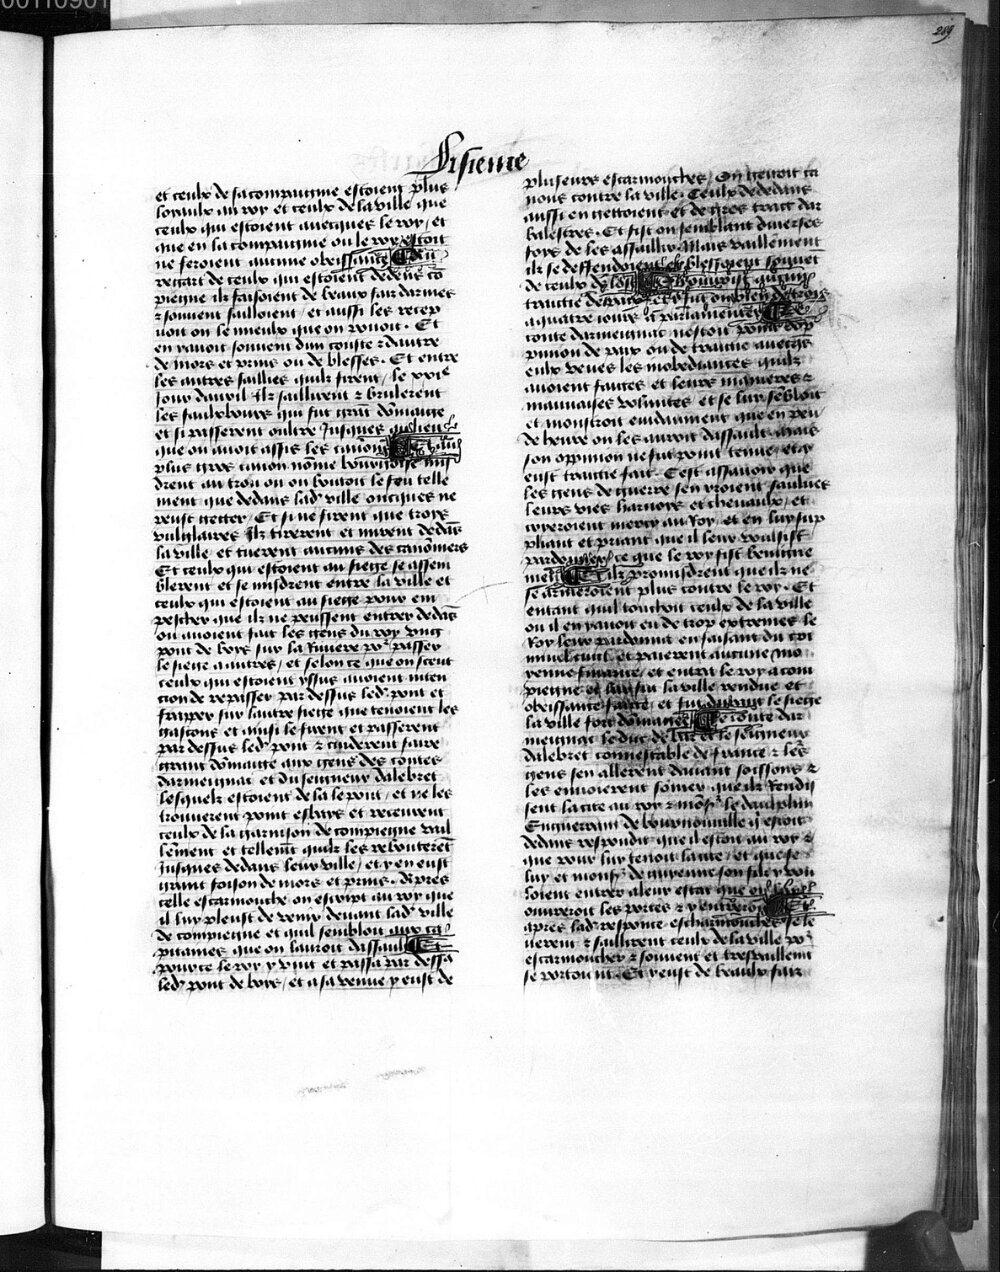 00110901
289
Sisieme
et ceulx de sa compaignie estoient plus
loyaulx au roy et ceulx de la ville que
ceulx qui estoient avecques le roy / et
que en sa compaignie ou le roy estoit
ne feroient aucune obeissance Et ou
regart de ceulx qui estoient dedens co
piegne ilz faisoient de beaux fais darmes
et souvent sailloient / et aussi les recep
voit on le mieulx que on povoit . Et
en y avoit souvent dun coste et dautre
de mors et prins ou de blesses . Et entre
les autres saillies quilz firent / le xvie
jour davril Ilz saillirent et brulerent
les faulxbours qui fut grant dommaige
et si passerent oultre Jusques au lieu
que on avoit assis les canons Et au
plus gros canon nomme bourgoise mi
drent au trou ou on boutoit le feu telle
ment que dedans lad ville oncques ne
peust getter / Et si ne firent que trois
Ilz tirerent et mirent dedans
la ville et tuerent aucuns des canonniers
Et ceulx qui estoient au siege se assem
blerent et se misdrent entre la ville et
ceulx qui estoient au siege pour em
pescher que ilz ne peussent entrer dedans
ou avoient fait les gens du roy ung
pont de boys sur la Riviere por passer
le siege a autres / et selon ce que on sceut
ceulx qui estoient yssus avoient inten
cion de repasser par dessus led pont et
frapper sur lautre siege que tenoient les
gascons et ainsi le firent et passerent
par dessus led pont et cuiderent faire
grant dommaige aux gens des contes
darmeignac et du seigneur dalebret
lesquelz estoient de la le pont / et ne les
trouverent point esbays et receurent
ceulx de la garnison de compiegne vail
lement et tellement quilz les rebouterent
jusques dedans leur ville / et y en eust
grant foison de mors et prins . Apres
celle escarmouche on escript au roy que
il luy pleust de venir devant lad ville
de compiegne et quil sembloit aux ca
pitaines que on lauroit dassault Et
pource le roy y vint et passa par dessus
led pont de boys / et a sa venue y eust de
plusieurs escarmouches / On gettoit ca
nons contre la ville . Ceulx de dedans
aussi en gettoient et de gros traict dar
balestres . Et fist on semblant diverses
foys de les assaillir Mais vaillement
ilz se deffendoient et blessoient souvent
de ceulx de lost
traictie et y fut on bien de trois
a quatre jours a parlamenter Le
conte darmeignac nestoit point dop
pinion de paix ou de traictie avecques
eulx veues les inobediances quilz
avoient faictes et leurs manieres et
mauvaises volentes et se luy sembloit
et monstroit evidanment que en peu
de heure on les auroit dassault Mais
son oppinion ne fut point tenue / et y
eust traictie fait . Cest assavoir que
les gens de guerre sen yroient saulves
leurs vies harnoys et chevaulx / et
cryeroient mercy au Roy / et en luy sup
pliant et priant que il leur voulsist
pardonner / ce que le roy fist benigne
ment Et ilz promisdrent que ilz ne
se armeroient plus contre le roy . Et
entant quil touchoit ceulx de la ville
ou il en y avoit eu de trop extremes le
Roy leur pardonna en faisant du cri
minel civil et paierent aucune mo
yenne finance / et entra le roy a com
piegne et luy fut la ville rendue et
obeissance faicte / et fut durant le siege
la ville fort dommaigee Le conte dar
meignac le duc de et le seigneur
dalebret connestable de france et les
gens sen allerent devant soissons et
les envoierent sommer que ilz Rendis
sent la cite au roy et monsr le daulphin
Enguerrant de bournonville qui estoit
dedans respondit que il estoit au roy et
que pour luy tenoit la cite / et que se
luy et monsr de guyenne son filz y vou
loient entrer a leur estat que on leur
ouvreroit les portes et y entreroient Et
apres lad response escharmouches se le
verent et saillirent ceulx de la ville por
escarmoucher et souvent et tresvaillement
se portoient . Et y eust de beaulx fais